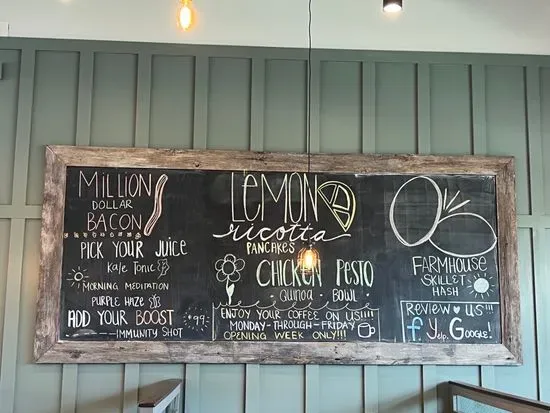 MILLION
DOLLAR
BACON
PICK YOUR JUICE
KALE TONIC
MORNING MEDITATION
PURPLE HAZE
ADD YOUR BOOST
IMMUNITY SHOT
.99
LEMON
ricotta
PANCAKES
CHICKEN PESTO
QUINOA BOWL
ENJOY YOUR COFFEE ON US!!!!
MONDAY-THROUGH-FRIDAY
OPENING WEEK ONLY!!!!
FARMHOUSE
SKILLET
HASH
REVIEW US!!!
f Yelp. GOOGLE!